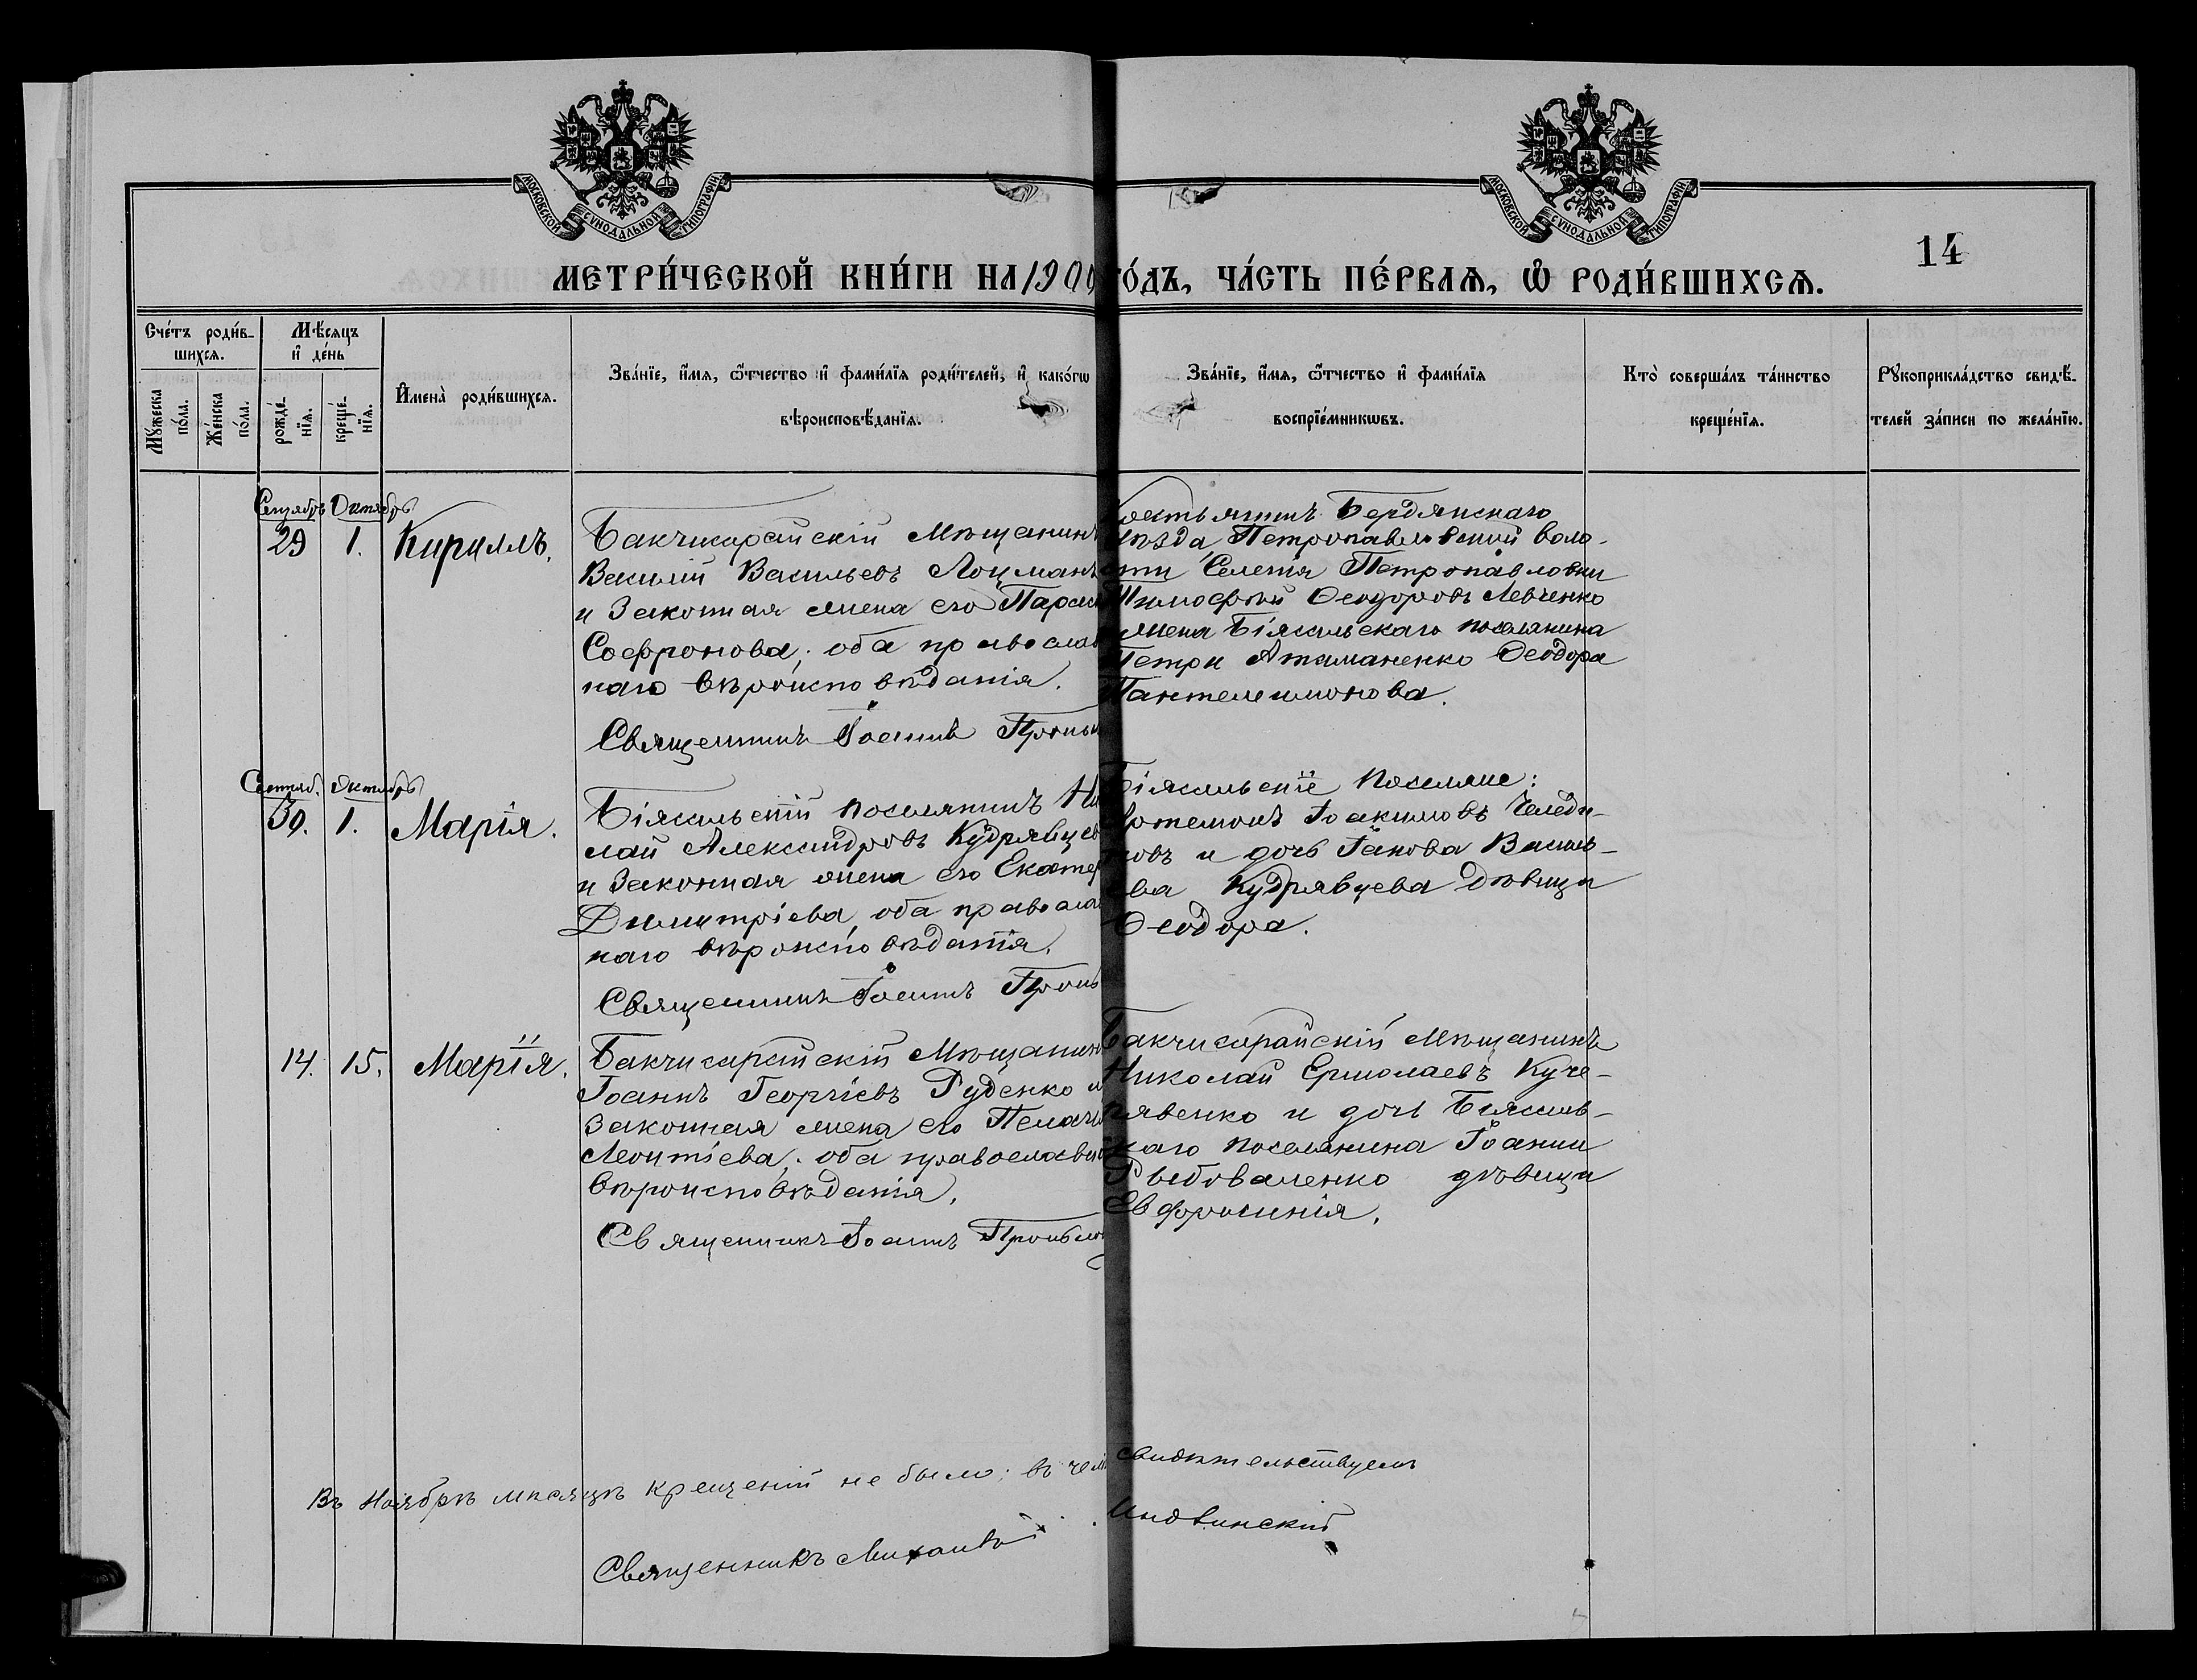 МОСКОВСКОЙ СѴНОДАЛЬНОЙ ТИПОГРАФІИ
МОСКОВСКОЙ СѴНОДАЛЬНОЙ ТИПОГРАФІИ
14
МЕТРИ́ЧЕСКОЙ КНИ́ГИ НА 1900 ГО́ДЪ, ЧА́СТЬ ПЕ́РВАѦ, Ѡ҆ РОДИ́ВШИХСѦ.
Сче́тъ роди́в-
шихсѧ.
Мꙋ́жеска
по́ла.
Же́нска
по́ла.
Мѣ́сѧцъ
и҆ де́нь
рожде́-
нїѧ.
креще́-
нїѧ.
И҆мена̀ роди́вшихсѧ.
Зва́нїе, и҆́мѧ, ѻ҆́тчество и҆ фами́лїѧ роди́телей, и҆ како́гѡ
вѣроисповѣ́данїѧ.
Зва́нїе, и҆́мѧ, ѻ҆́тчество и҆ фами́лїѧ
воспрїе́мникѡвъ.
Кто̀ соверша́лъ та́инство
креще́нїѧ.
Рꙋкоприкла́дство свидѣ́-
телей за́писи по жела́нїю.
Сентябрь Октябрь
29 1. Кириллъ.
Бакчисарайскій Мѣщанинъ
Василій Васильевъ Лоцманъ
и Законная жена его Параск
Софронова; оба православ
наго вѣроисповѣданія.
Священникъ Іоаннъ
Крестьянинъ Бердянскаго
уѣзда Петропавловской воло-
сти Селенія Петропавловки
Тимофей Ѳеодоровъ Левченко
жена Біясальскаго поселянина
Петра Атаманенко Ѳеодора
Пантелеимонова.
Сентяб. Октябрь
30. 1. Марія.
Біясальскій поселянинъ Ни
лай Александровъ Кудрявцев
и Законная жена его Екатер
Димитріева, оба православ
наго вѣроисповѣданія.
Священникъ Іоаннъ
Біясальскіе поселяне:
Іоакимовъ Челедн-
ковъ и дочь Іакова Василь-
ева Кудрявцева дѣвица
Ѳеодора.
14. 15. Марія.
Бакчисарайскій Мѣщанинъ
Іоаннъ Георгіевъ Руденко и
Законная жена его Пелагі
Леонтіева; оба православн
вѣроисповѣданія.
Священникъ Іоаннъ
Бакчисарайскій Мѣщанинъ
Николай Ермолаевъ Куче-
рявенко и дочь Біясаль-
скаго поселянина Іоанна
Рыбоваленко дѣвица
Евфросинія.
Въ Ноябрѣ мѣсяцѣ крещеній не было; въ чемъ свидѣтельствуемъ
Священникъ Михаилъ Индвинскій